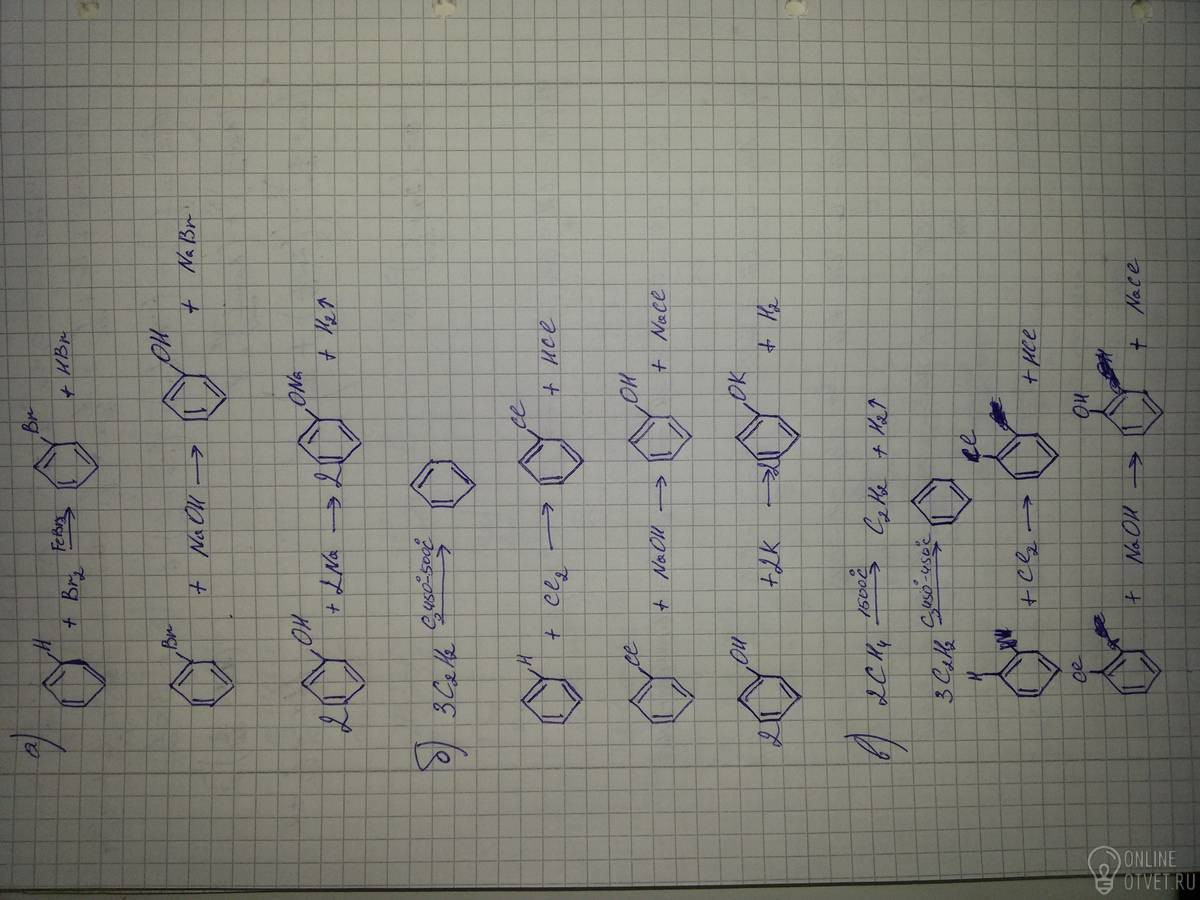 а)
H + Br2 FeBr3 → Br + HBr
Br + NaOH → OH + NaBr
2 OH + 2Na → 2 ONa + H2↑
б) 3C2H2 C, 450°-500°C →
H + Cl2 → Cl + HCl
Cl + NaOH → OH + NaCl
2 OH + 2K → 2 OK + H2
в) 2CH4 1500°C → C2H2 + H2↑
3C2H2 C, 450°-450°C →
H + Cl2 → Cl + HCl
Cl + NaOH → OH + NaCl
ONLINE
OTVET.RU